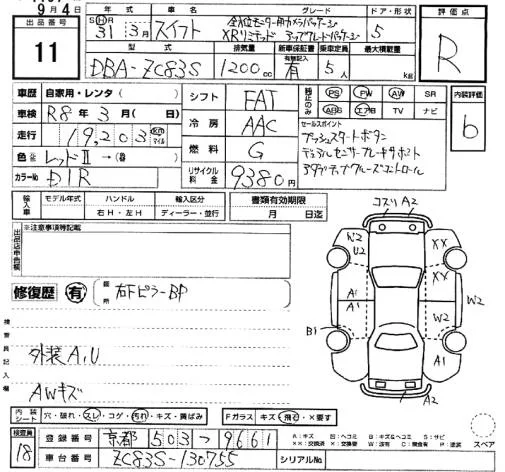 9月4日
出品番号 年式 車名 グレード ドア・形状 評価点
11 S H R 31年 3月 スイフト 全方位モニター用カメラパッケージ XRリミテッド アップグレードパッケージ 5 R
型式 排気量 新車保証書 有無記入 乗車定員 最大積載量
DBA-ZC83S 1200cc 有 5人 kg
車歴 自家用・レンタ( ) シフト FAT 純正のみ PS PW AW SR 内装評価
車検 R8年 3月( 日) ABS エアB TV ナビ b
走行 19,203 km マイル 冷房 AAC セールスポイント
プッシュスタートボタン
色 レッドII→( ) 燃料 G デュアルセンサーブレーキサポート
カラーNo D1R リサイクル料金 9380円 アダプティブクルーズコントロール
輸入車 モデル年式 ハンドル 輸入区分 書類有効期限
右H・左H ディーラー・並行 月 日迄
出品店申告欄 ※注意事項等記載
コスリ A2
W2 U2 XX XX
A1 A1 W2 W2
B1 A1
A2
修復歴 有 箇所 右Fピラー-BP
検査員記入欄
外装A,U
AWキズ
内装シート 穴・破れ・スレ・コゲ・汚れ・キズ・黄ばみ Fガラス キズ・飛石・×要す
検査員 18 登録番号 京都 503 つ 9661
A:キズ U:ヘコミ B:キズ&ヘコミ S:サビ
XX:交換済 X:要交換 W:波有 C:腐食有 P:塗装 スペア
車台番号 ZC83S-130755 シリアルNo